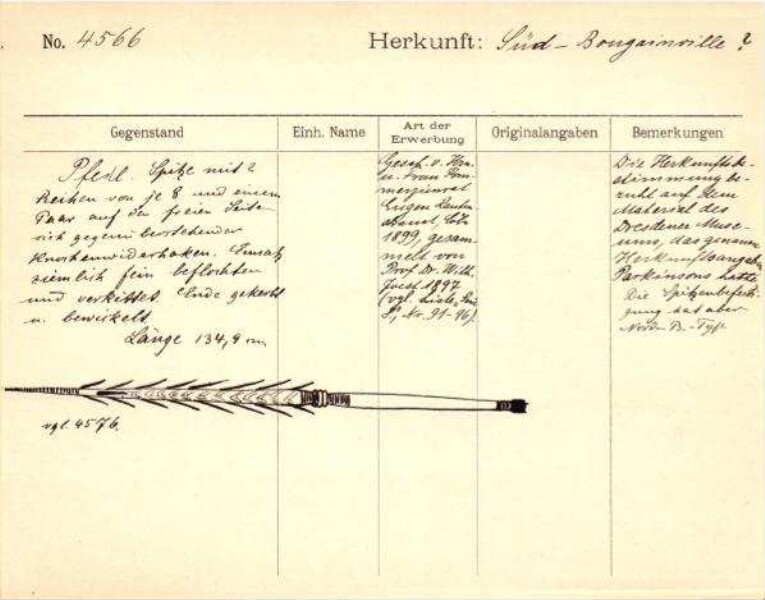 No. 4566
Herkunft: Süd-Bougainville ?
Gegenstand
Einh. Name
Art der Erwerbung
Originalangaben
Bemerkungen
Pfeil. Spitze mit 2
Reihen von je 8 und einem
Paar auf den freien Seiten
sich gegenüberstehender
Knochenwiderhaken. Einsatz
ziemlich fein beflochten
und verkittet. Ende gekerbt
u. bewickelt
Länge 134,9 cm
vgl. 4576.
Gesch. v. Hrn.
u. Frau Kom-
merzienrat
Eugen Rauten-
strauch, Cöln
1899, gesam-
melt von
Prof. Dr. Wilh.
Joest 1897
(vgl. Liste
Nr. 91-96).
Die Herkunftsbe-
stimmung be-
ruht auf dem
Material des
Dresdener Muse-
ums, das genaue
Herkunftsangaben
Parkinsons hatte
Die Spitzenbefesti-
gung hat aber
Nord-B.-Typ